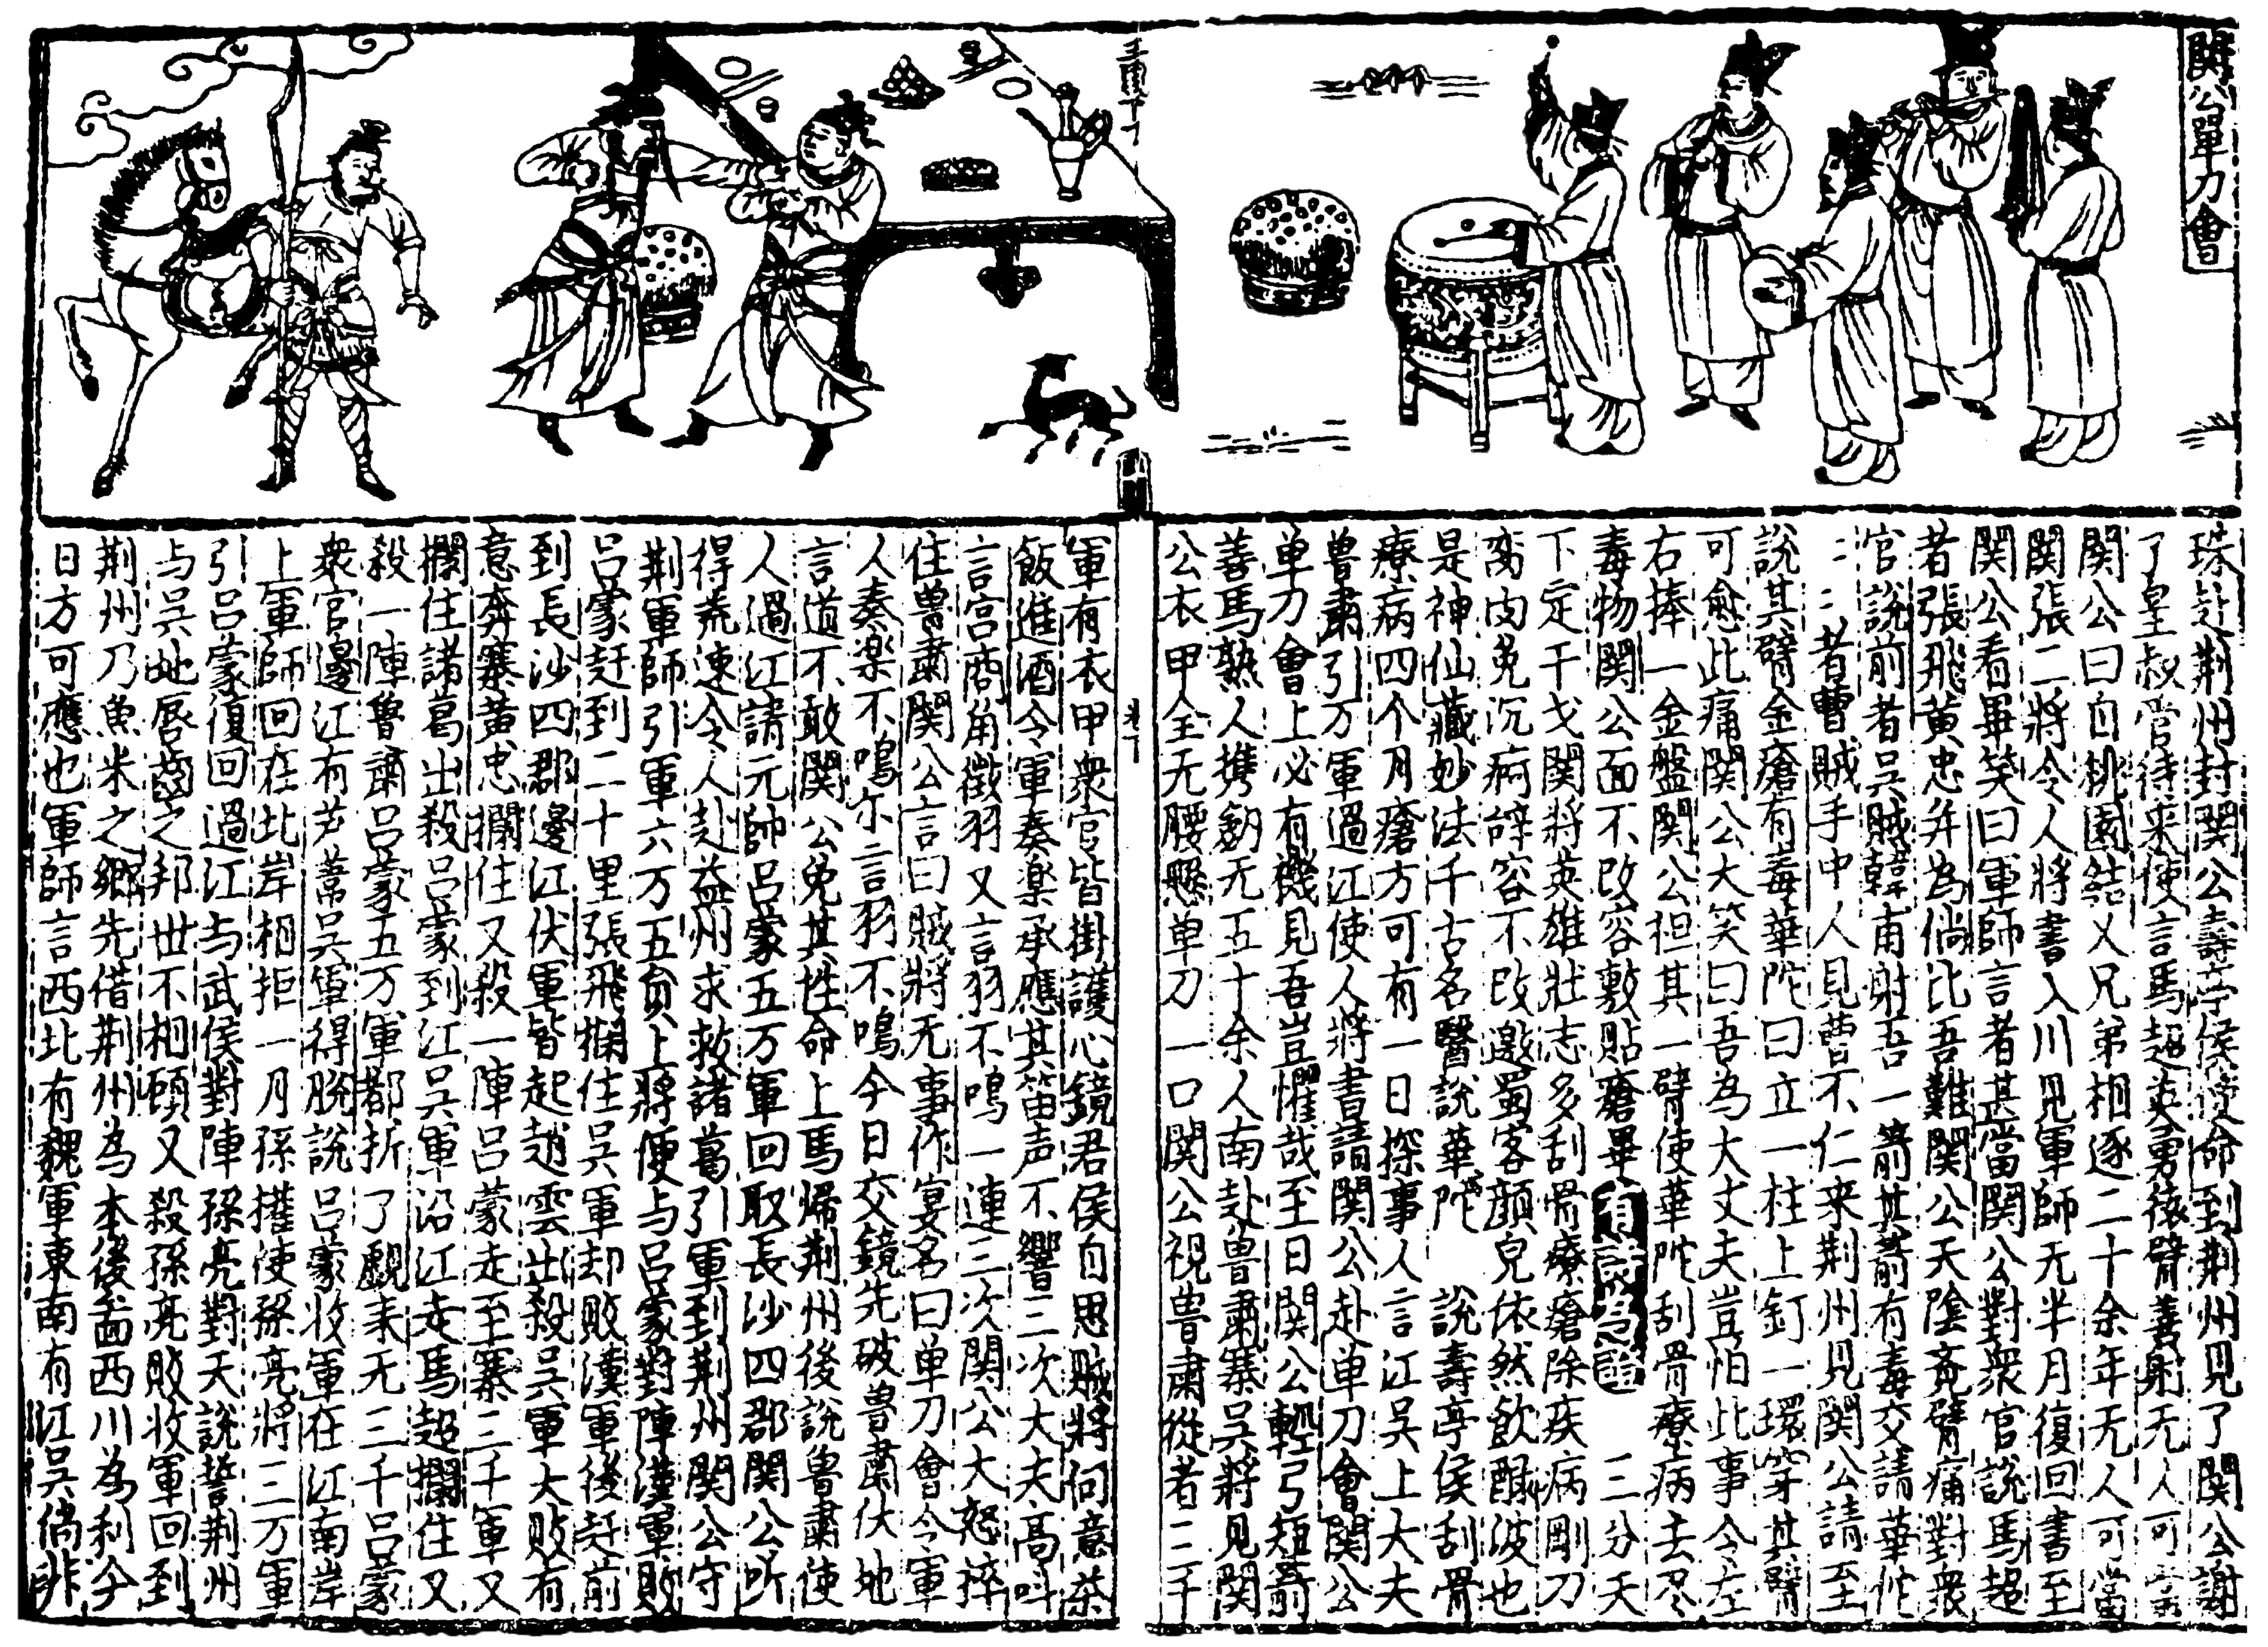 関公單刀會
珠赴荆州封関公壽亭侯使命到荆州見了関公謝
了皇叔管待来使言馬超英勇猿臂善射无人可當
関公曰自桃園結义兄弟相逐二十余年无人可當
関張二將令人將書入川見軍師无半月復回書至
関公看畢笑曰軍師言者甚當関公對衆官說馬超
者張飛黄忠并為倘比吾難関公天陰覔臂痛對衆
官說前者吳賊韓甫射吾一箭其箭有毒交請華佗
〻〻者曹賊手中人見曹不仁来荆州見関公請至
說其臂金瘡有毒華陀曰立一柱上釘一環穿其臂
可愈此痛関公大笑曰吾為大丈夫豈怕此事令左
右捧一金盤関公袒其一臂使華陀刮骨療病去尽
毒物関公面不改容敷貼瘡畢 三分天
下定干戈関將英雄壯志多刮骨療瘡除疾病剛刀
肉免沉痾辞容不改邀蜀客顔皃依然飲醁波也
是神仙藏妙法千古名醫說華陀 說壽亭侯刮骨
療病四个月瘡方可有一日探事人言江吳上大夫
魯肅引万軍過江使人將書請関公赴单刀會関公
单刀會上必有機見吾豈懼哉至日関公輕弓短箭
善馬熟人携劒无五十余人南赴魯肅寨吳將見関
公衣甲全无腰懸单刀一口関公視魯肅從者三千
軍有衣甲衆官皆掛護心鏡君侯自思賊將何意茶
飯進酒令軍奏楽承應其笛声不響三次大夫高叫
言宫商角徵羽又言羽不鳴一連三次関公大怒捽
住魯肅関公言曰賊將无事作宴名曰单刀會令軍
人奏楽不鳴尔言羽不鳴今日交鏡先破魯肅伏地
言道不敢関公免其性命上馬帰荆州後說魯肅使
人過江請元帥吕蒙五万軍回取長沙四郡関公听
得荒速令人赴益州求救諸葛引軍到荆州関公守
荆軍師引軍六万五員上將便与吕蒙對陣漢軍敗
吕蒙赶到二十里張飛攔住吳軍却敗漢軍後赶前
到長沙四郡邊江伏軍皆起趙雲出殺吳軍大敗有
意奔寨黄忠攔住又殺一陣吕蒙走至寨三千軍又
攔住諸葛出殺吕蒙到江吳軍沿江走馬超攔住又
殺一陣魯肅吕蒙五万軍都折了觑来无三千吕蒙
衆官邊江有芦葦吳軍得脫說吕蒙收軍在江南岸
上軍師回在北岸相拒一月孫權使孫亮將三万軍
引吕蒙復回過江与武侯對陣孫亮對天說誓荆州
与吳地唇齒之邦世不相顧又殺孫亮敗收軍回到
荆州乃魚米之鄉先借荆州為本後面西川為利今
日方可應也軍師言西北有魏軍東南有江吳倘非